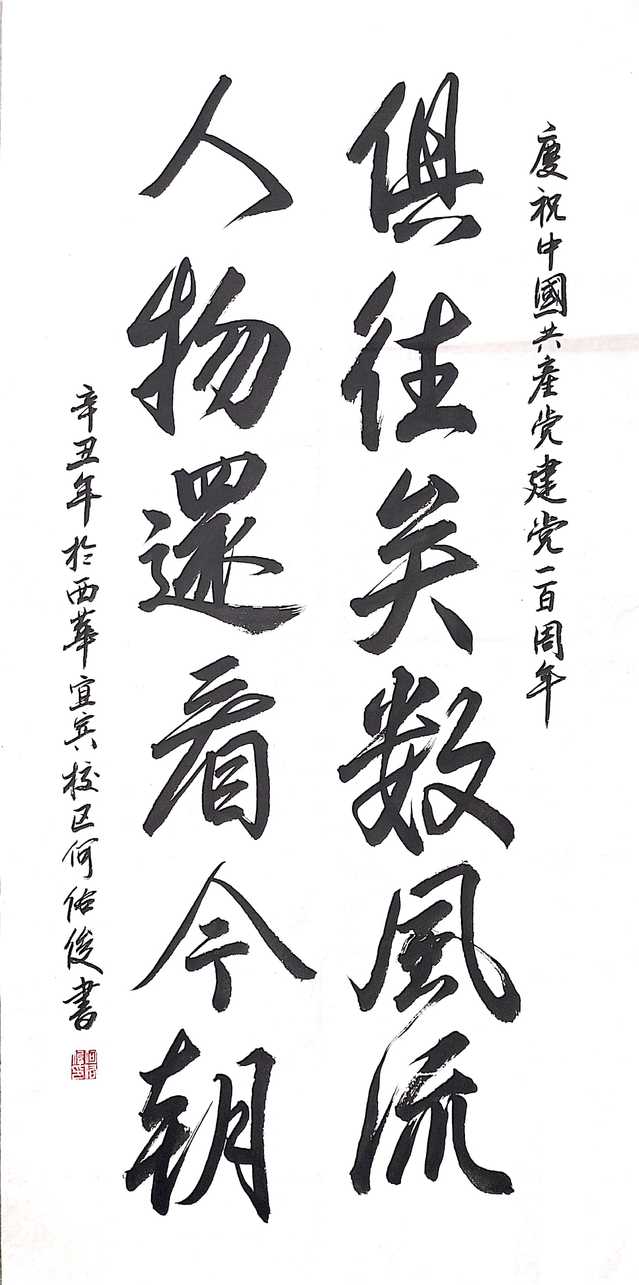 慶祝中國共產党建党一百周年
俱往矣数風流
人物還看今朝
辛丑年於西華宜賓校区何佑俊書